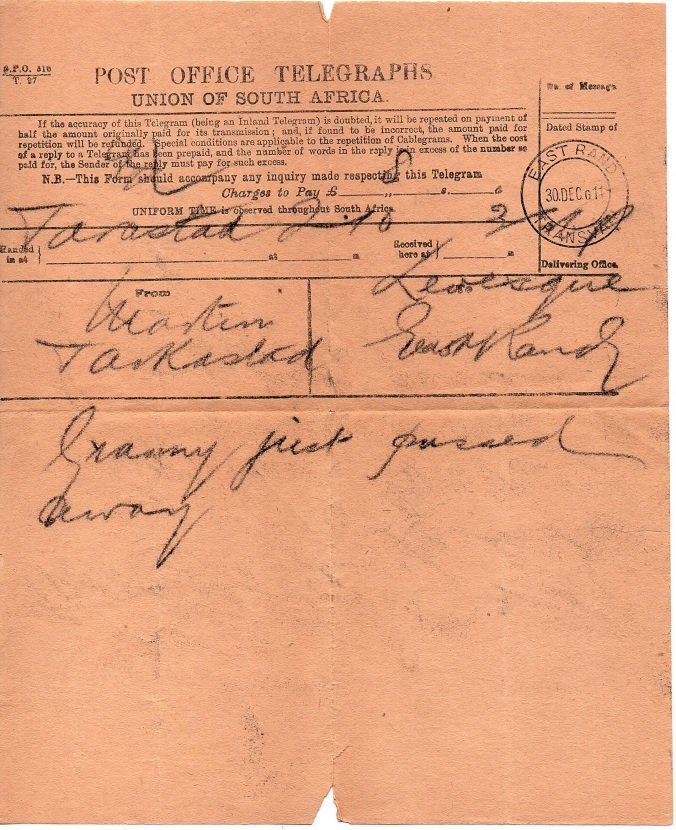 G.P.O. 516
T. 27
POST OFFICE TELEGRAPHS
UNION OF SOUTH AFRICA.
No. of Message
If the accuracy of this Telegram (being an Inland Telegram) is doubted, it will be repeated on payment of
half the amount originally paid for its transmission; and, if found to be incorrect, the amount paid for
repetition will be refunded. Special conditions are applicable to the repetition of Cablegrams. When the cost
of a reply to a Telegram has been prepaid, and the number of words in the reply is in excess of the number so
paid for, the Sender of the reply must pay for such excess.
N.B.—This Form should accompany any inquiry made respecting this Telegram
Charges to Pay £ s. d
UNIFORM TIME is observed throughout South Africa
Dated Stamp of
EAST RAND
30.DEC.11
TRANSVAAL
Delivering Office
Tarkastad 2.10
Handed in at at m
Received here at m
From
Martin
Tarkastad
Levesque
East Rand
Granny just passed
away